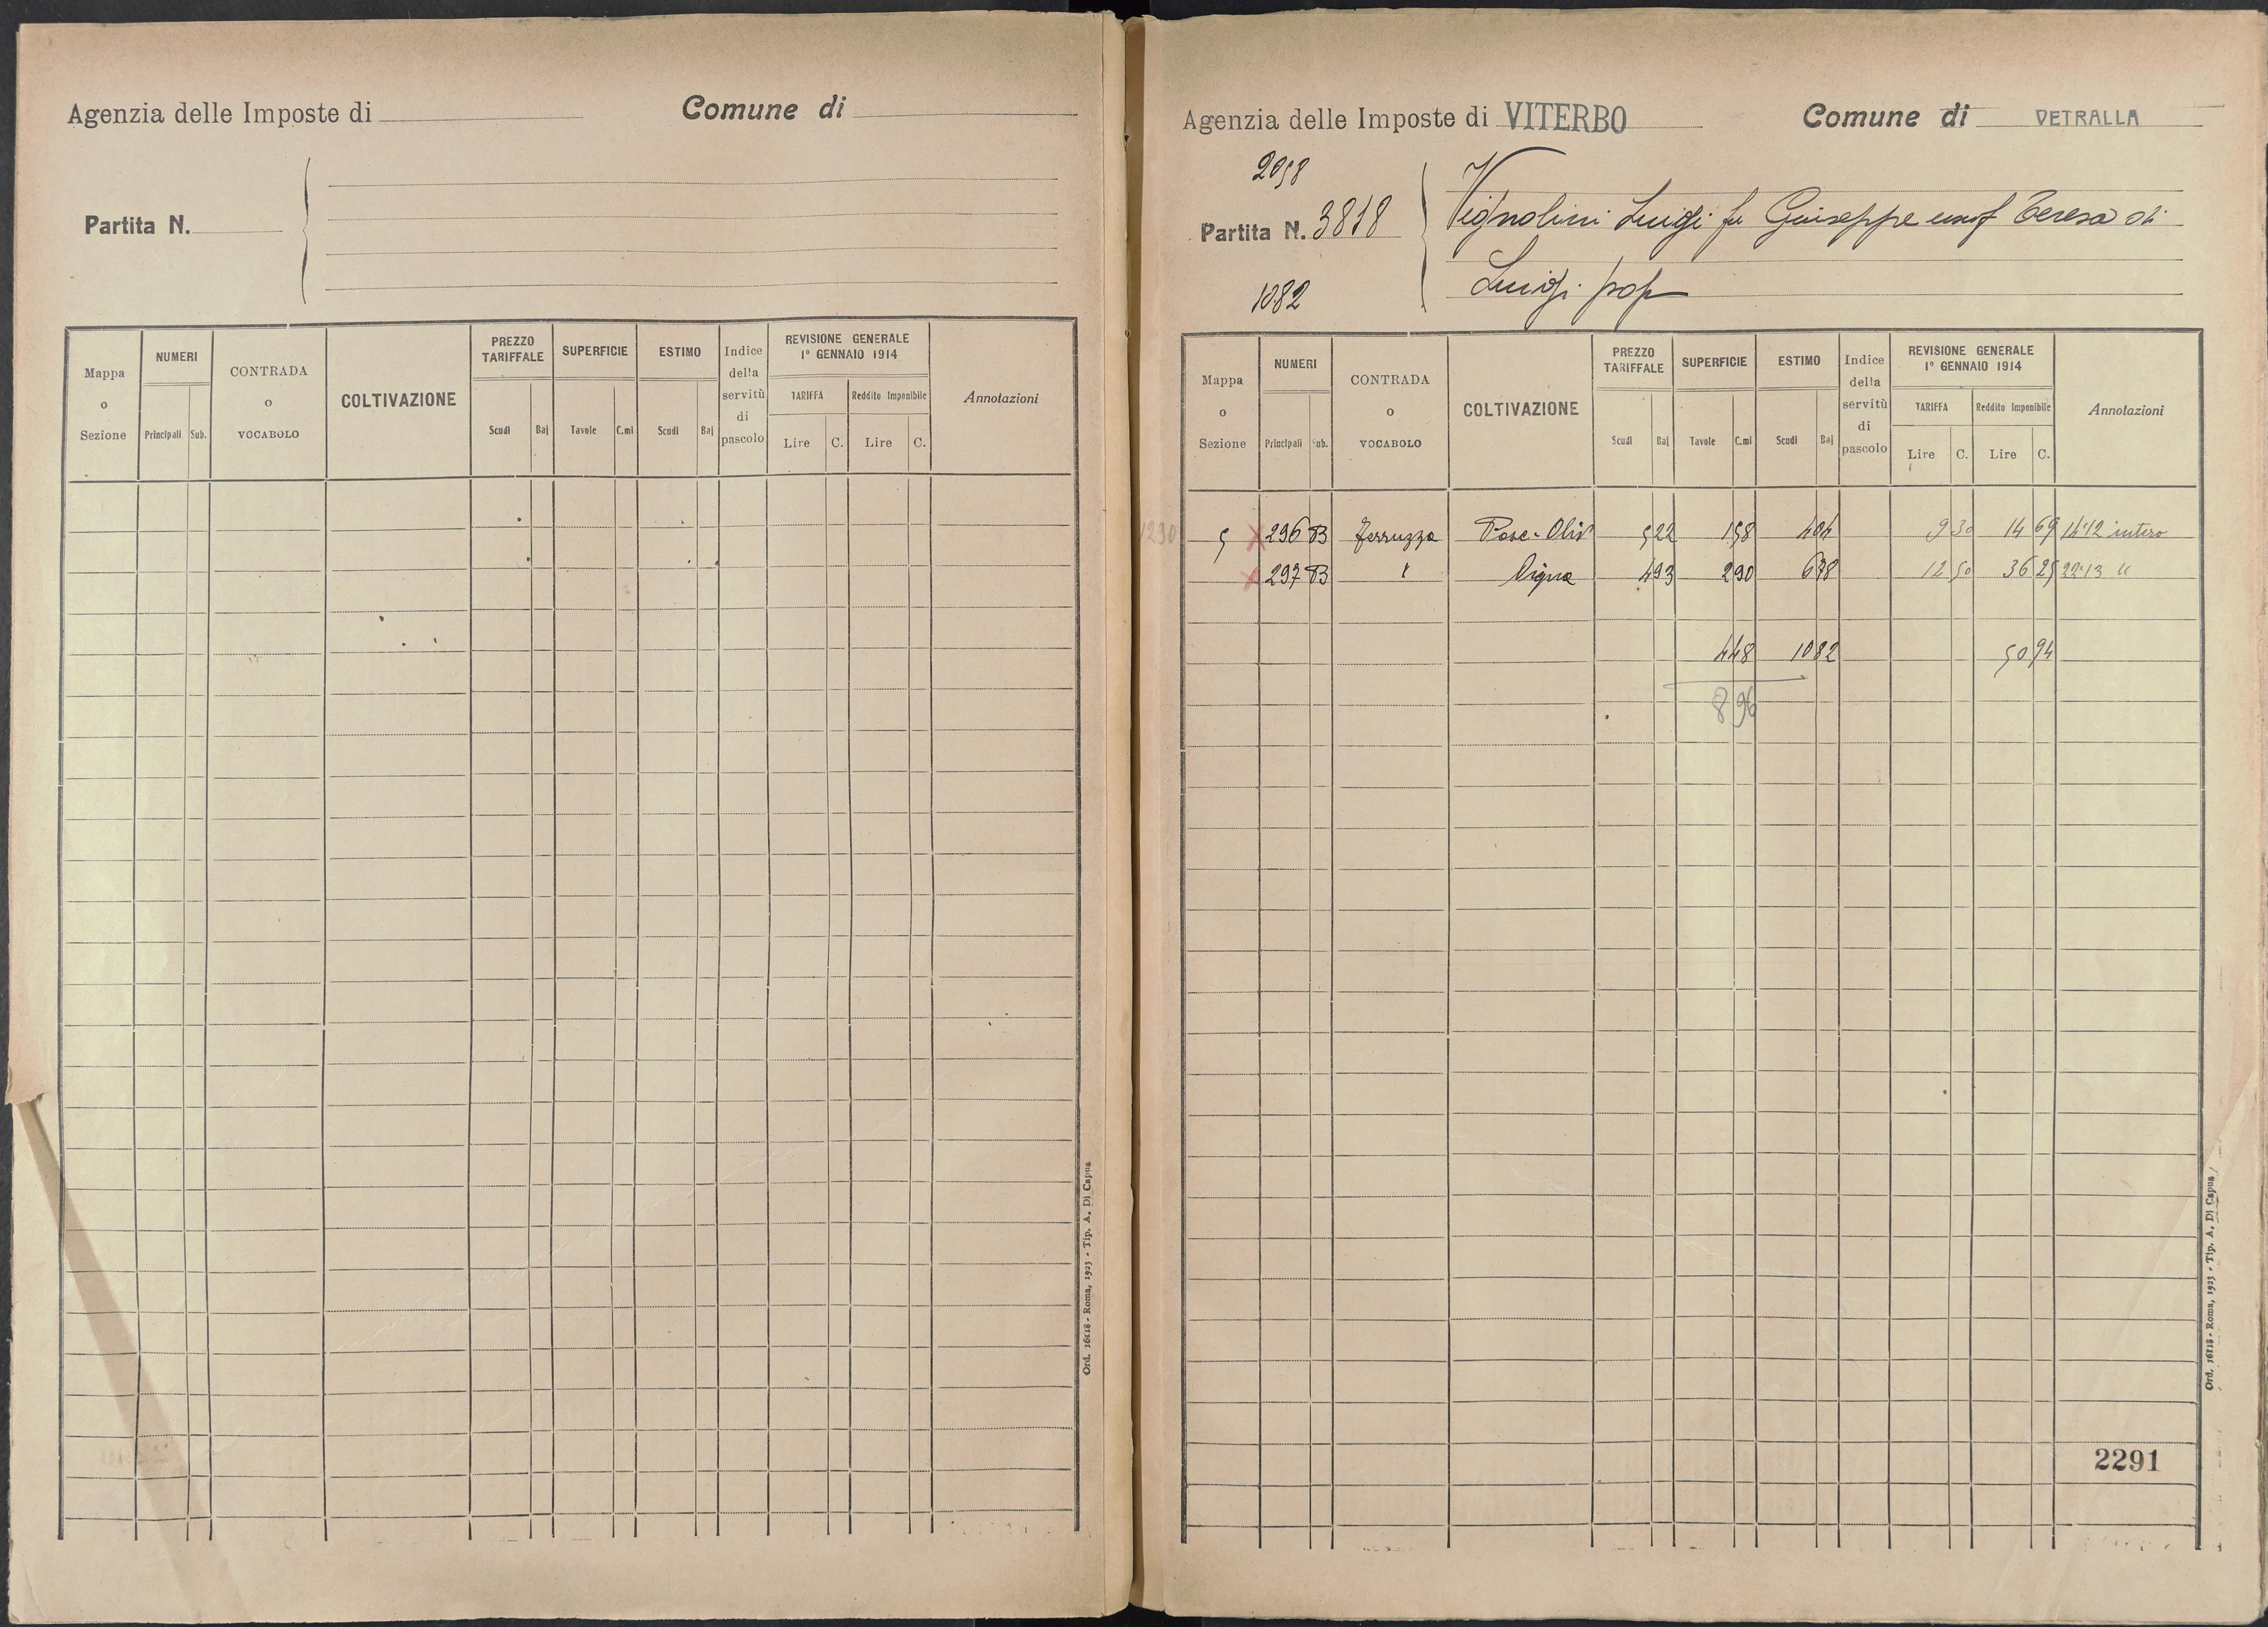 Agenzia delle Imposte di
Comune di
Partita N.
Mappa o Sezione
NUMERI
Principali Sub.
CONTRADA o VOCABOLO
COLTIVAZIONE
PREZZO TARIFFALE
Scudi Baj
SUPERFICIE
Tavole C.mi
ESTIMO
Scudi Baj
Indice della servitù di pascolo
REVISIONE GENERALE 1° GENNAIO 1914
TARIFFA
Lire C.
Reddito Imponibile
Lire C.
Annotazioni
Ord. 16118 - Roma, 1923 - Tip. A. Di Capua
Agenzia delle Imposte di VITERBO
Comune di VETRALLA
2058
Partita N. 3818
1082
Vignolini Luigi fu Giuseppe usuf Teresa di
Luigi prop
Mappa o Sezione
NUMERI
Principali Sub.
CONTRADA o VOCABOLO
COLTIVAZIONE
PREZZO TARIFFALE
Scudi Baj
SUPERFICIE
Tavole C.mi
ESTIMO
Scudi Baj
Indice della servitù di pascolo
REVISIONE GENERALE 1° GENNAIO 1914
TARIFFA
Lire C.
Reddito Imponibile
Lire C.
Annotazioni
1290 5 296 B Ferruzza Pasc. Oliv 5 22 1 58 4 04 9 30 14 69 14.12 intero
297 B " Vigna 4 93 2 90 6 78 12 50 36 25 22.13 "
4 48 10 82 50 94
8 96
2291
Ord. 16118 - Roma, 1923 - Tip. A. Di Capua